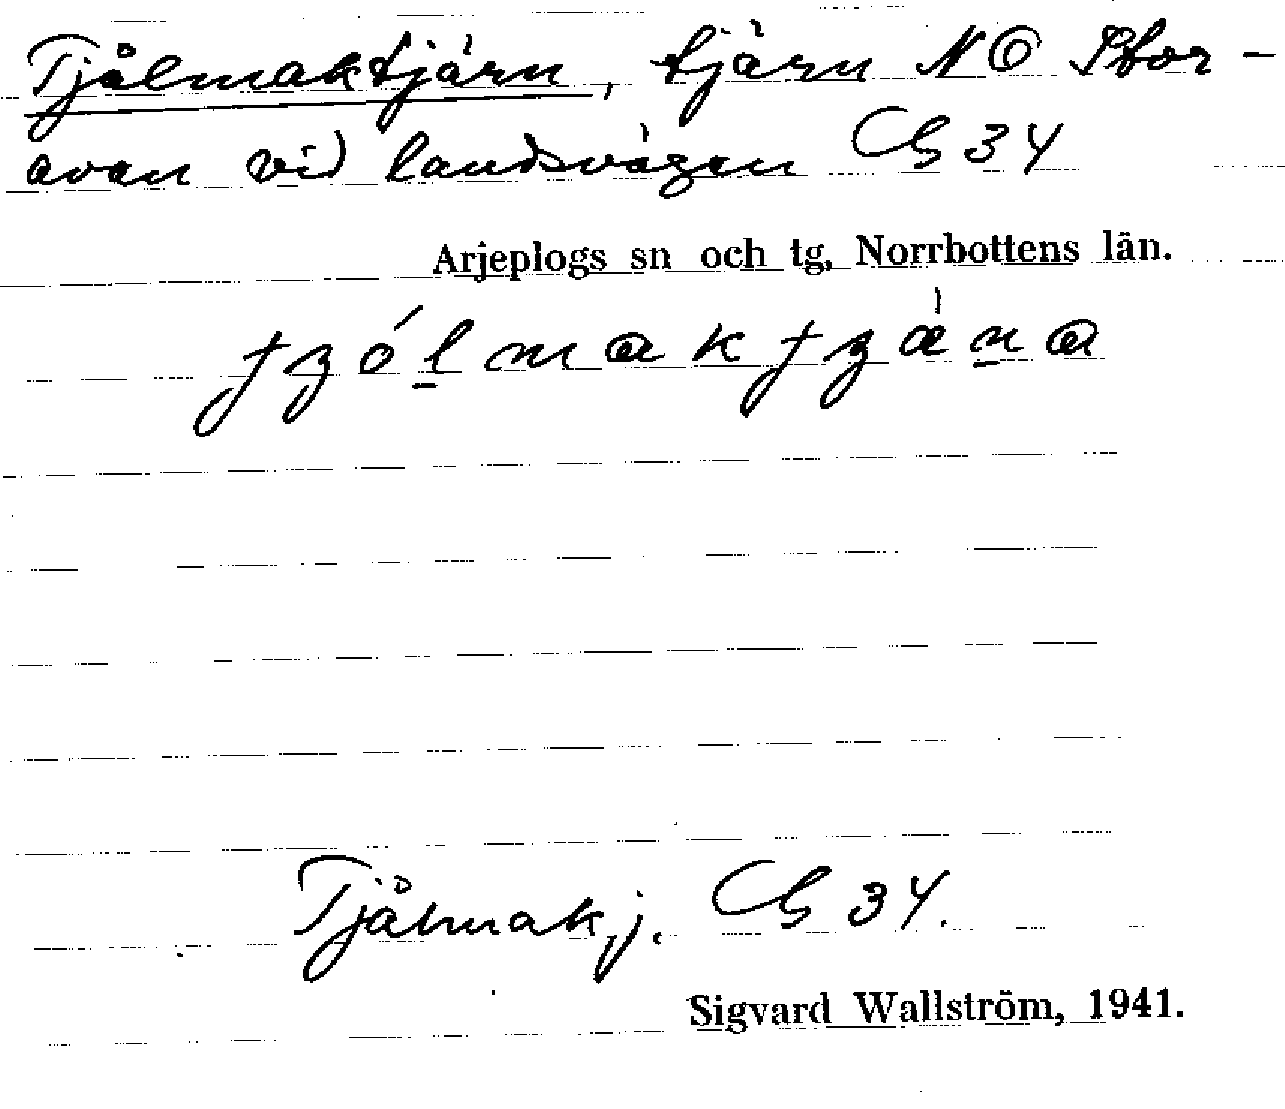 Tjålmaktjärn, tjärn NO Stor-
avan vid landsvägen CG 34
Arjeplogs sn och tg, Norrbottens län.
Tjålmakj. CG 34.
Sigvard Wallström, 1941.